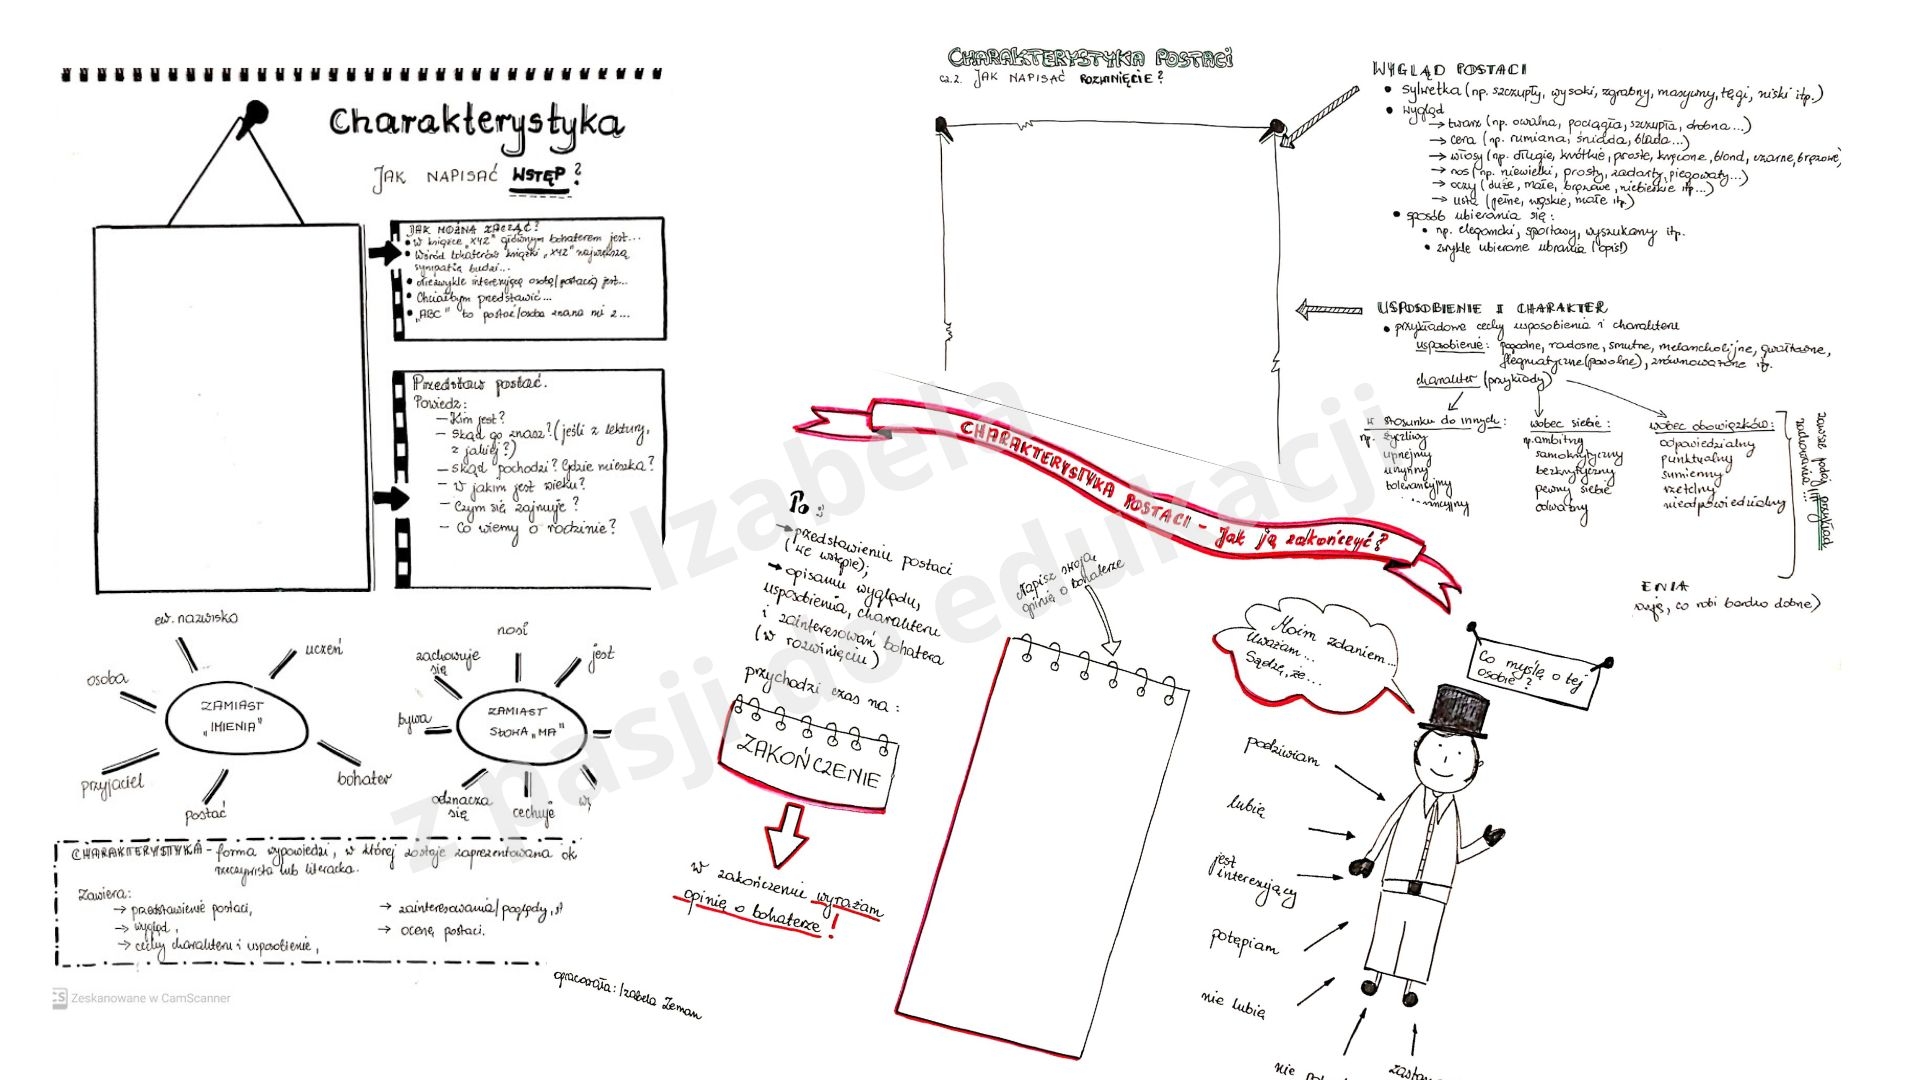 Charakterystyka
JAK NAPISAĆ WSTĘP?
JAK MOŻNA ZACZĄĆ?
• W książce „XYZ" głównym bohaterem jest...
• Wśród bohaterów książki „XYZ" największą
sympatię budzi...
• Niezwykle interesującą osobą/postacią jest...
• Chciałbym przedstawić...
• „ABC" to postać/osoba znana mi z...
Przedstaw postać.
Powiedz:
– Kim jest?
– Skąd go znasz? (jeśli z lektury,
z jakiej?)
– Skąd pochodzi? Gdzie mieszka?
– W jakim jest wieku?
– Czym się zajmuje?
– Co wiemy o rodzinie?
ew. nazwisko
uczeń
osoba
ZAMIAST
„IMIENIA"
przyjaciel
postać
bohater
nosi
zachowuje
się
jest
bywa
ZAMIAST
SŁOWA „MA"
odznacza
się
cechuje
CHARAKTERYSTYKA - forma wypowiedzi, w której zostaje zaprezentowana
rzeczywista lub literacka.
Zawiera:
→ przedstawienie postaci,
→ wygląd,
→ cechy charakteru i usposobienie,
→ zainteresowania/poglądy,
→ ocenę postaci.
CS Zeskanowane w CamScanner
opracowała: Izabela Zeman
CHARAKTERYSTYKA POSTACI
cz. 2. JAK NAPISAĆ ROZWINIĘCIE?
WYGLĄD POSTACI
• sylwetka (np. szczupły, wysoki, zgrabny, masywny, tęgi, niski itp.)
• wygląd
→ twarz (np. owalna, pociągła, szczupła, drobna...)
→ cera (np. rumiana, śniada, blada...)
→ włosy (np. długie, krótkie, proste, kręcone, blond, czarne, brązowe,
→ nos (np. niewielki, prosty, zadarty, piegowaty...)
→ oczy (duże, małe, brązowe, niebieskie itp...)
→ usta (pełne, wąskie, małe itp.)
• sposób ubierania się:
• np. elegancki, sportowy, wyszukany itp.
• zwykle ubierane ubrania (opis!)
USPOSOBIENIE I CHARAKTER
• przykładowe cechy usposobienia i charakteru
usposobienie: pogodne, radosne, smutne, melancholijne, gwałtowne,
flegmatyczne (powolne), zrównoważone itp.
charakter (przykłady)
w stosunku do innych:
np. życzliwy
uprzejmy
uczynny
tolerancyjny
wobec siebie:
np. ambitny
samokrytyczny
bezkrytyczny
pewny siebie
odważny
wobec obowiązków:
odpowiedzialny
punktualny
sumienny
rzetelny
nieodpowiedzialny
zawsze podaj przykład
zachowania!!!
ENIA
co robi bardzo dobrze)
CHARAKTERYSTYKA POSTACI - Jak ją zakończyć?
Po:
→ przedstawieniu postaci
(we wstępie);
→ opisaniu wyglądu,
usposobienia, charakteru
i zainteresowań bohatera
(w rozwinięciu)
przychodzi czas na:
ZAKOŃCZENIE
w zakończeniu wyrażam
opinię o bohaterze!
Napisz swoją
opinię o bohaterze
Moim zdaniem...
Uważam...
Sądzę, że...
Co myślę o tej
osobie?
podziwiam
lubię
jest
interesujący
potępiam
nie lubię
nie
Izabela
z pasji do edukacji